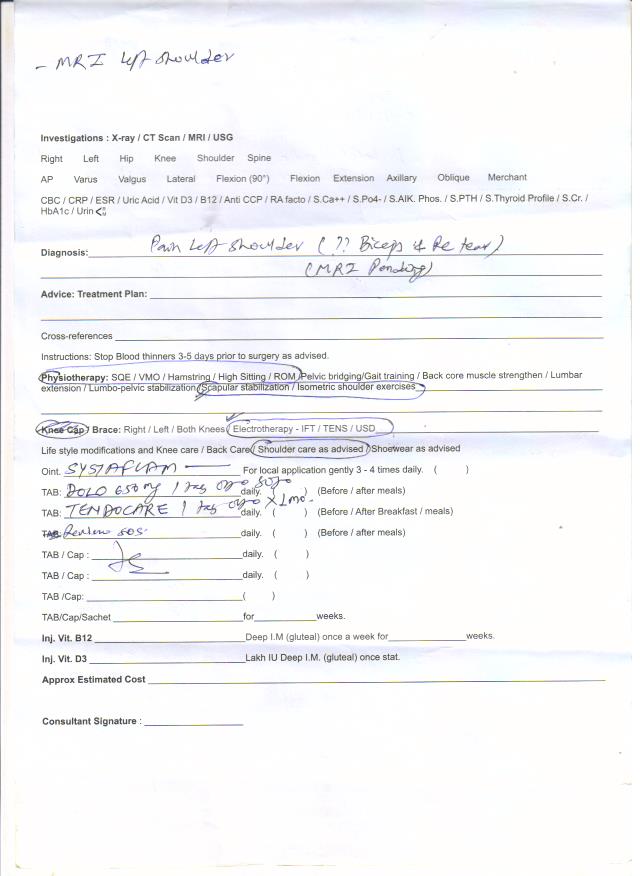 - MRI left shoulder
Investigations : X-ray / CT Scan / MRI / USG
Right Left Hip Knee Shoulder Spine
AP Varus Valgus Lateral Flexion (90°) Flexion Extension Axillary Oblique Merchant
CBC / CRP / ESR / Uric Acid / Vit D3 / B12 / Anti CCP / RA facto / S.Ca++ / S.Po4- / S.AlK. Phos. / S.PTH / S.Thyroid Profile / S.Cr. /
HbA1c / Urin
Diagnosis: Pain left shoulder ( ?? Biceps tear)
(MRI Pending)
Advice: Treatment Plan:
Cross-references
Instructions: Stop Blood thinners 3-5 days prior to surgery as advised.
Physiotherapy: SQE / VMO / Hamstring / High Sitting / ROM / Pelvic bridging/Gait training / Back core muscle strengthen / Lumbar
extension / Lumbo-pelvic stabilization / Scapular stabilization / Isometric shoulder exercises
Knee Cap / Brace: Right / Left / Both Knees / Electrotherapy - IFT / TENS / USD
Life style modifications and Knee care / Back Care / Shoulder care as advised / Shoewear as advised
Oint. SYSTAFLAM For local application gently 3 - 4 times daily. ( )
TAB: DOLO 650 mg 1 tab daily. ( ) (Before / after meals)
TAB: TENDOCARE 1 tab x 1 mo. daily. ( ) (Before / After Breakfast / meals)
TAB: SOS daily. ( ) (Before / after meals)
TAB / Cap : daily. ( )
TAB / Cap : daily. ( )
TAB /Cap: ( )
TAB/Cap/Sachet for weeks.
Inj. Vit. B12 Deep I.M (gluteal) once a week for weeks.
Inj. Vit. D3 Lakh IU Deep I.M. (gluteal) once stat.
Approx Estimated Cost
Consultant Signature :